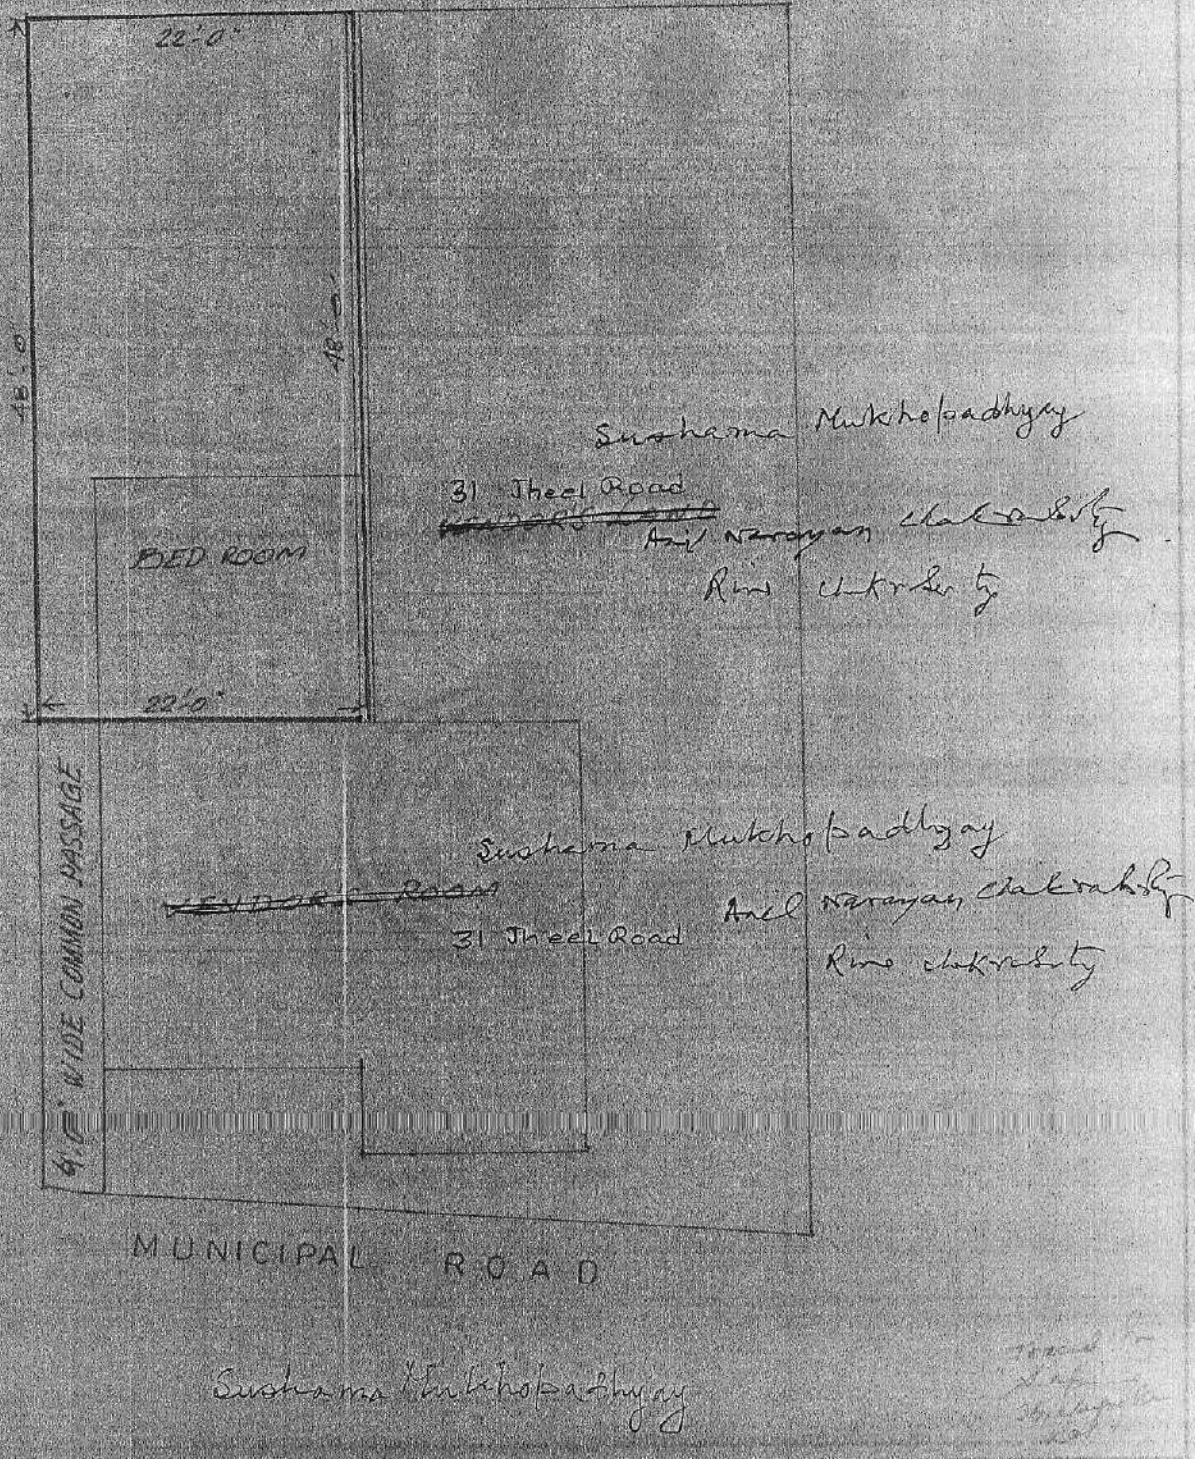 22'-0"
48'-0"
48'-0"
Sushama Mukhopadhyay
31 Jheel Road
VENDOR'S LAND
Anil Narayan Chakraborty
BED ROOM
Rina Chakraborty
22'-0"
4'.0" WIDE COMMON PASSAGE
Sushama Mukhopadhyay
VENDOR'S ROOM
Anil Narayan Chakraborty
31 Jheel Road
Rina Chakraborty
MUNICIPAL ROAD
Sushama Mukhopadhyay